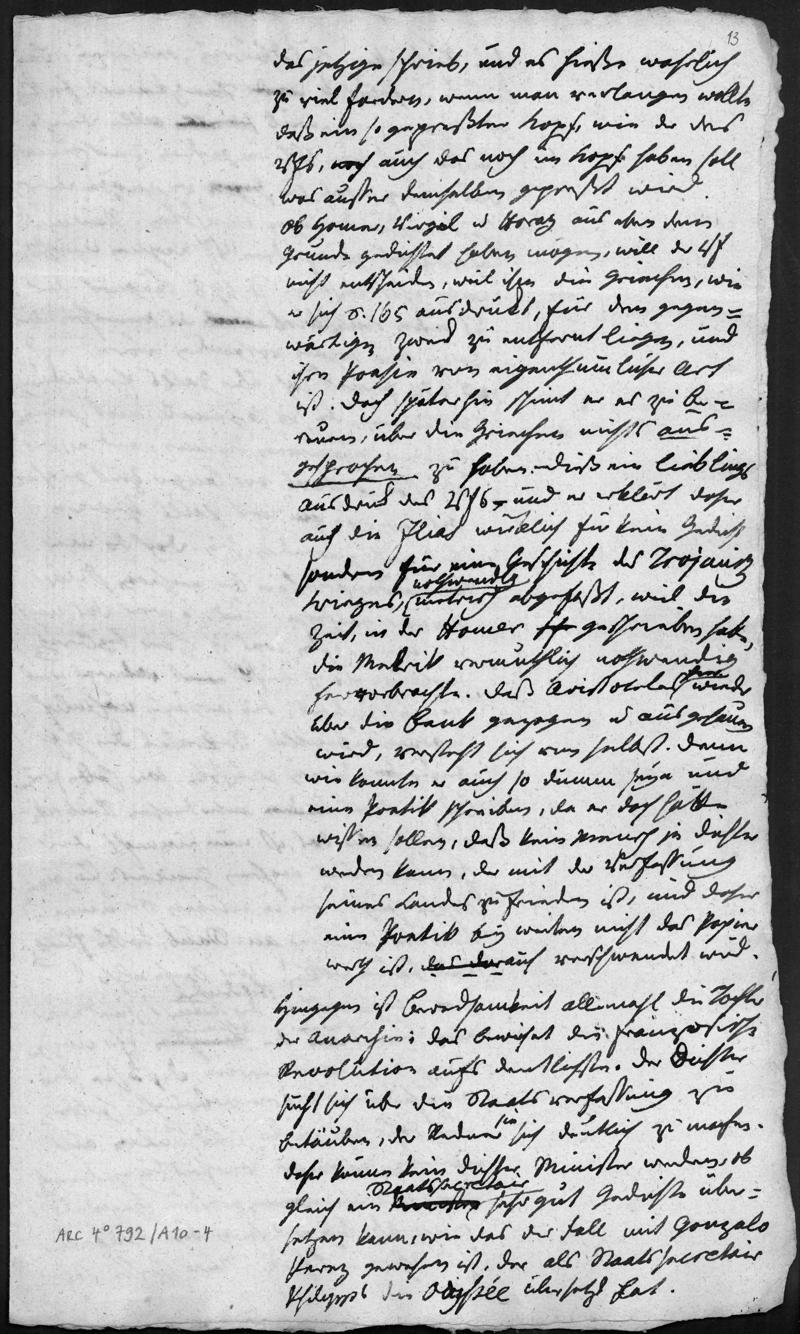 13
das jetzige schrieb, und es hieße wahrlich
zu viel fordern, wenn man verlangen wollte
daß ein so gepreßter Kopf, wie der des
Vfs, noch auch das noch im Kopf haben soll
was ausser demselben gepreßt wird.
Ob Homer, Virgil u Horaz aus eben dem
Grunde gedichtet haben mögen, will der Vf
nicht entscheiden, weil ihm die Griechen, wie
er sich S. 165 ausdrukt, für den gegen=
wärtigen Zweck zu entfernt liegen, und
ihre Poesie von eigenthümlicher Art
ist. Doch späterhin scheint er es zu be=
reuen, über die Griechen nichts aus=
gesprochen zu haben – dieß ein Lieblings
ausdruk des Vfs – und er erklärt daher
auch die Ilias wirklich für kein Gedicht
sondern für eine Geschichte des Trojanisch
Krieges, nothwendig metrisch abgefaßt, weil die
Zeit, in der Homer geschrieben habe,
die Metrik vermuthlich nothwendig
hervorbrachte. Daß Aristoteles hier wieder
über die Bank gezogen u ausgehauen
wird, versteht sich von selbst. Denn
wie konnte er auch so dumm seyn und
eine Poetik schreiben, da er doch hätte
wissen sollen, daß kein Mensch je Dichter
werden kann, der mit der Verfassung
seines Landes zufrieden ist, und daher
eine Poetik bey weiten nicht das Papier
werth ist, das darauf verschwendet wird.
Hingegen ist Beredsamkeit allemahl die Tochter
der Anarchie: das beweiset die französische
Revolution aufs deutlichste. Der Dichter
sucht sich über die Staatsverfassung zu
betäuben, der Redner sie sich deutlich zu machen.
Daher könne kein Dichter Minister werden, ob
gleich ein Staatssecretair sehr gut Gedichte über=
setzen kann, wie das der Fall mit Gonzalo
Perez gewesen ist, der als Staatssecretair
Philipps die Odyssee übersetzt hat.
ARC 4° 792/A10-4